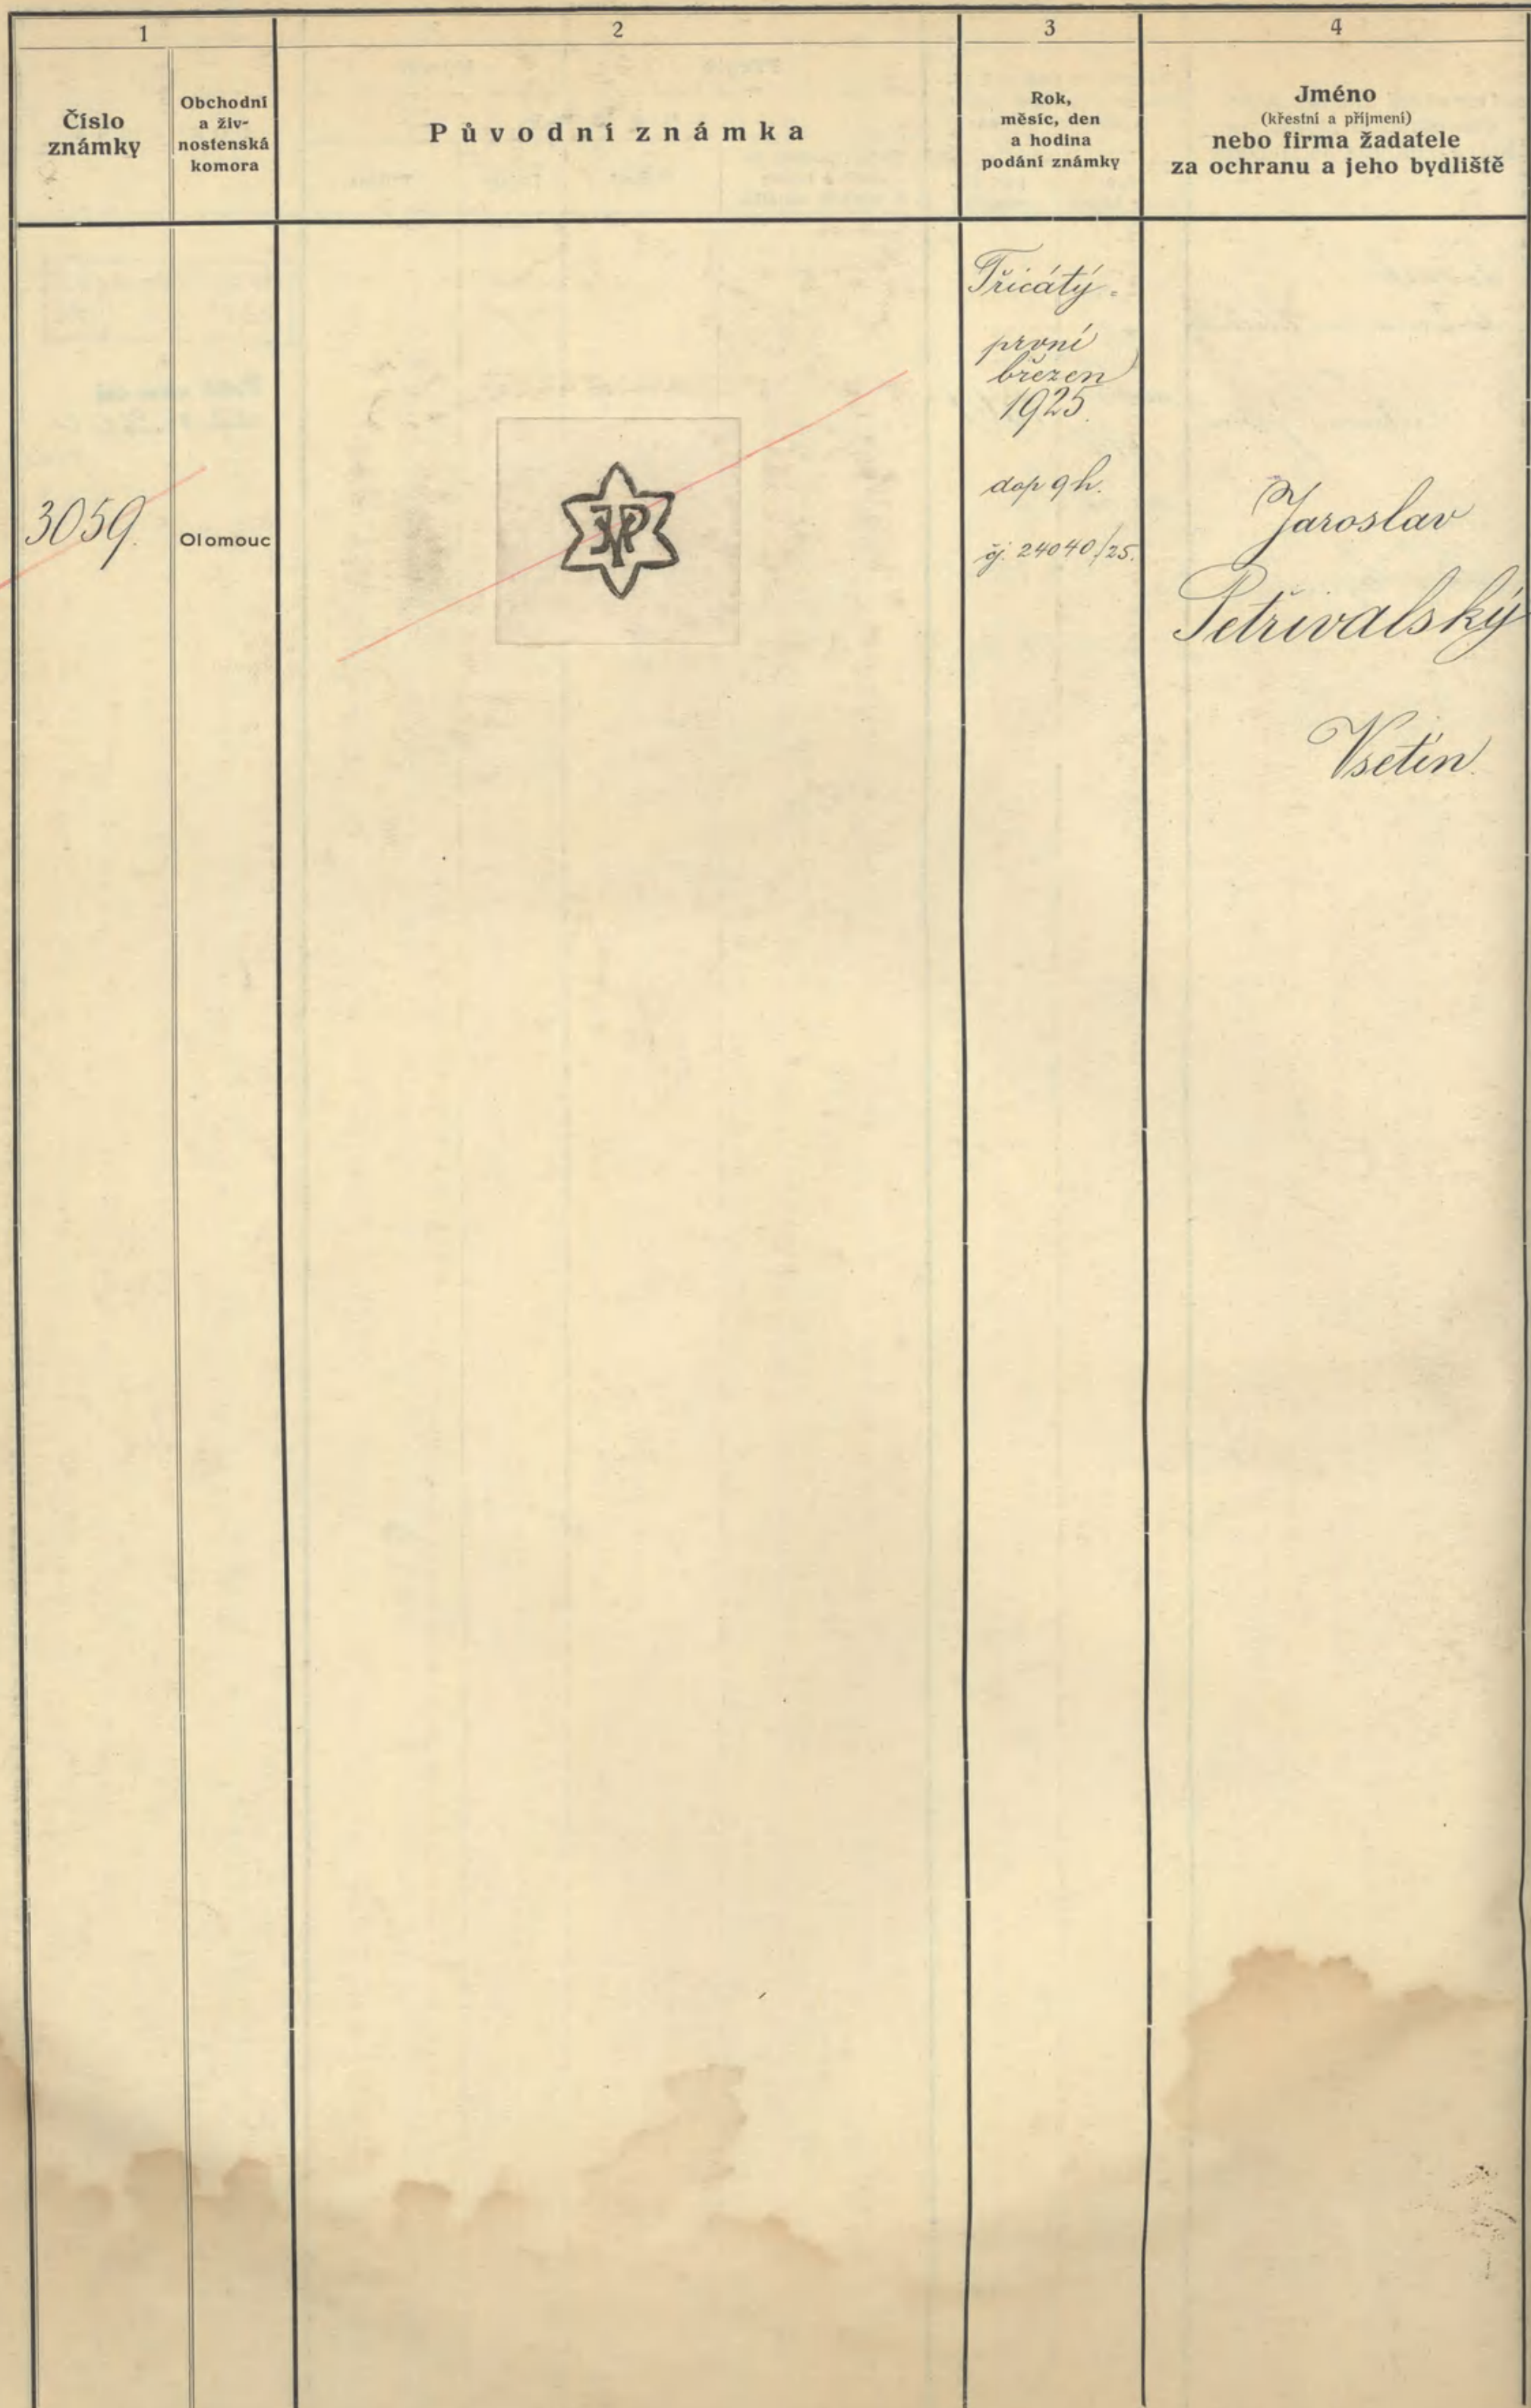 1
2
3
4
Číslo
známky
Obchodní
a živ-
nostenská
komora
Původní známka
Rok,
měsíc, den
a hodina
podání známky
Jméno
(křestní a příjmení)
nebo firma žadatele
za ochranu a jeho bydliště
3059.
Olomouc
JP
Třicátý-
první
březen
1925.
dop 9 h.
čj. 24040/25.
Jaroslav
Petřivalský
Vsetín.